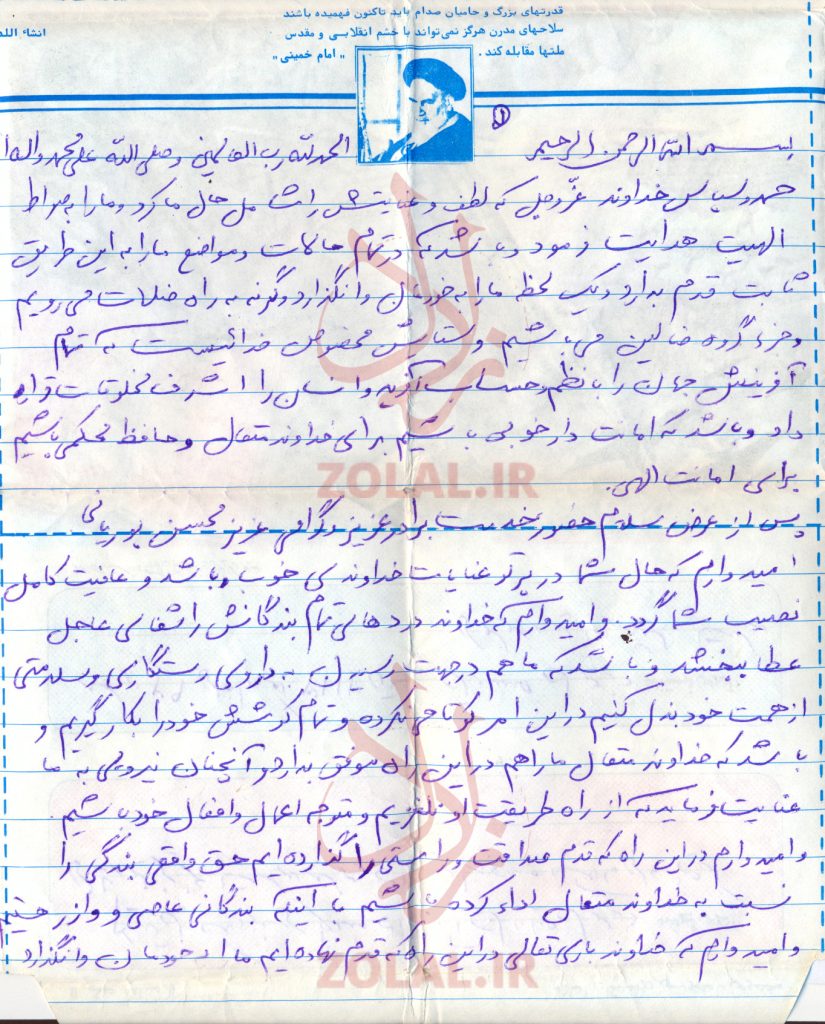 قدرتهای بزرگ و حامیان صدام باید تاکنون فهمیده باشند
سلاحهای مدرن هرگز نمی‌تواند با خشم انقلابی و مقدس
انشاء الله
ملتها مقابله کند . "امام خمینی"
۱
بسم الله الرحمن الرحیم الحمدلله رب العالمین وصلی الله علی محمد واله
حمد وسپاس خداوند عزّوجل که لطف و عنایتش را شامل حال ما کرد و ما را به صراط
الهیت هدایت فرمود و باشد که در تمام حالات و مواضع ما را به این طریق
ثابت قدم بدارد و یک لحظه ما را به خودمان وانگذارد وگرنه به راه ضلالت می رویم
و جزء گروه ضالین می باشیم و ستایش مخصوص خدائیست که تمام
آفرینش جهان را با نظم و حساب آفرید و انسان را اشرف مخلوقات قرار
داد و باشد که امانت دار خوبی باشیم برای خداوند متعال و حافظ محکمی باشیم
برای امانت الهی.
پس از عرض سلام حضور خدمت برادر عزیز و گرامی عزیز محسن
امیدوارم که حال شما در پرتو عنایات خداوندی خوب باشد و عافیت کامل
نصیب شما گردد. و امیدوارم که خداوند دردهای تمام بندگانش را شفای عاجل
عطا ببخشد و باشد که ما هم در جهت رسیدن به داروی رستگاری و سلامتی
از همت خود بذل کنیم در این امر کوتاهی نکرده و تمام کوشش خود را بکار گیریم و
باشد که خداوند متعال ما را هم در این راه موفق بدارد و آنچنان نیرویی به ما
عنایت فرماید که از راه طریقت او نلغزیم و متوجه اعمال و افعال خود باشیم.
و امیدوارم در این راه که قدم صداقت و راستی را گذارده ایم حق واقعی بندگی را
نسبت به خداوند متعال اداء کرده باشیم با اینکه بندگانی عاصی و
و امیدوارم که خداوند باری تعالی در این راه که قدم نهاده ایم ما را به خودمان وانگذارد
زلال
ZOLAL.IR
زلال
ZOLAL.IR